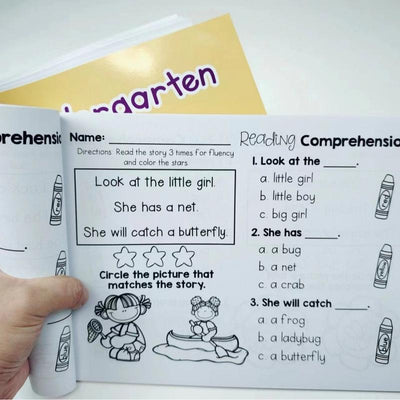 ergarten
prehensio
Name:
Directions: Read the story 3 times for fluency
and color the stars.
Look at the little girl.
She has a net.
She will catch a butterfly.
Circle the picture that
matches the story.
Reading Comprehensio
1. Look at the ______.
a. little girl
b. little boy
c. big girl
2. She has ______.
a. a bug
b. a net
c. a crab
3. She will catch ______.
a. a frog
b. a ladybug
c. a butterfly